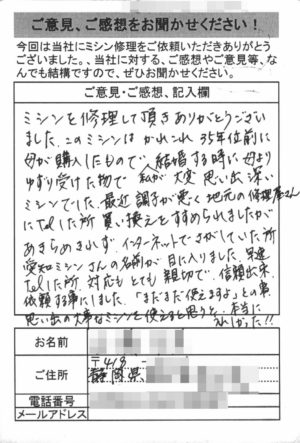 ご意見、ご感想をお聞かせください！
今回は当社にミシン修理をご依頼いただきありがとう
ございました。当社に対する、ご感想やご意見等、な
んでも結構ですので、ぜひお聞かせください。
ご意見・ご感想、記入欄
ミシンを修理して頂きありがとうござい
ました。このミシンは かれこれ 35年位前に
母が購入したもので、結婚する時に母より
ゆずり受けた物で 私が 大変 思い出深い
ミシンでした。最近 調子が悪く 地元の修理屋さん
にTelした所 買い換えとすすめられましたが
あきらめきれず インターネットでさがしていた所
愛知ミシンさんの名前が目に入りました。早速
Telした所 対応も とても 親切で 信頼出来
依頼する事にしました。「まだまだ使えますよ」との事
思い出の大事なミシンを使えると思うと、本当に
うれしかった!!
お名前
ご住所
〒418 -
静岡県
電話番号
メールアドレス